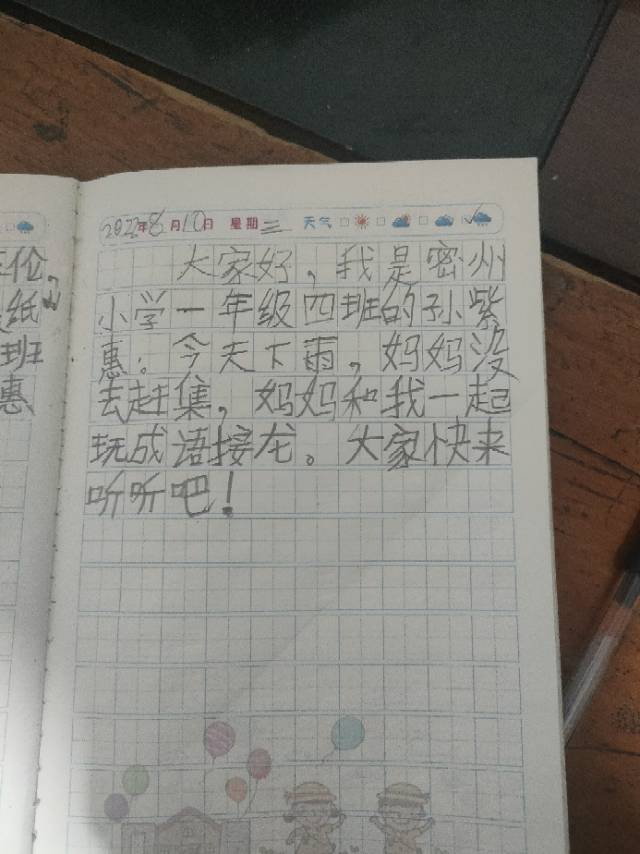 2022年8月10日 星期三 天气
大家好，我是密州
小学一年级四班的孙紫
惠。今天下雨，妈妈没
去赶集，妈妈和我一起
玩成语接龙。大家快来
听听吧！
伦，
纸
班
惠